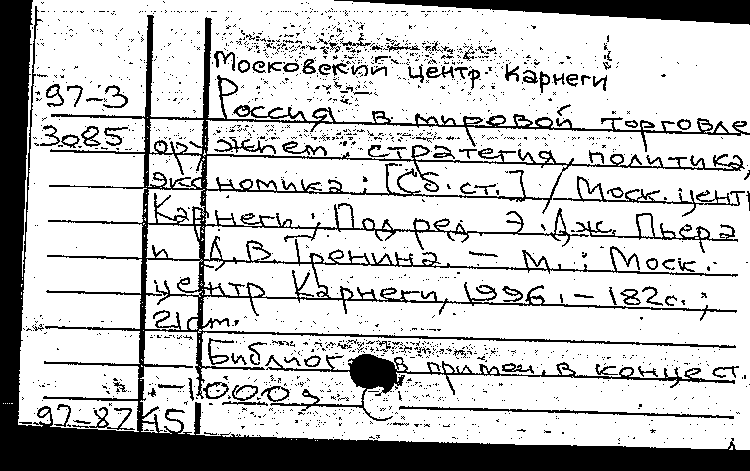 Московский центр Карнеги
97-3 Россия в мировой торговле
3085 оружием: стратегия, политика,
экономика: [Сб. ст.] / Моск. центр
Карнеги; Под ред. Э. Дж. Пьера
и Д. В. Тренина. — М.: Моск.
центр Карнеги, 1996. — 182с.;
21см.
Библиог в примеч. в конце ст.
— 1000э
97-8745